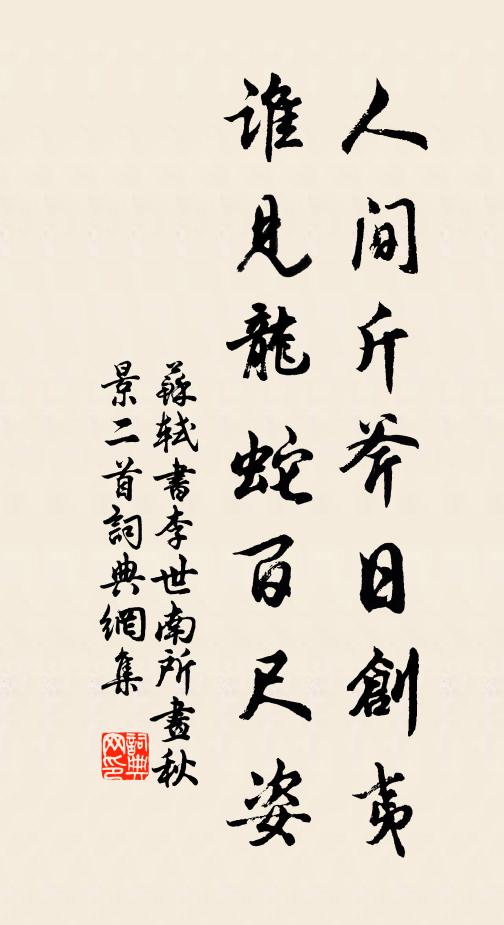 人間斤斧日創夷
誰見龍蛇百尺姿
蘇軾書李世南所畫秋
景二首詞典網集
詞典網印